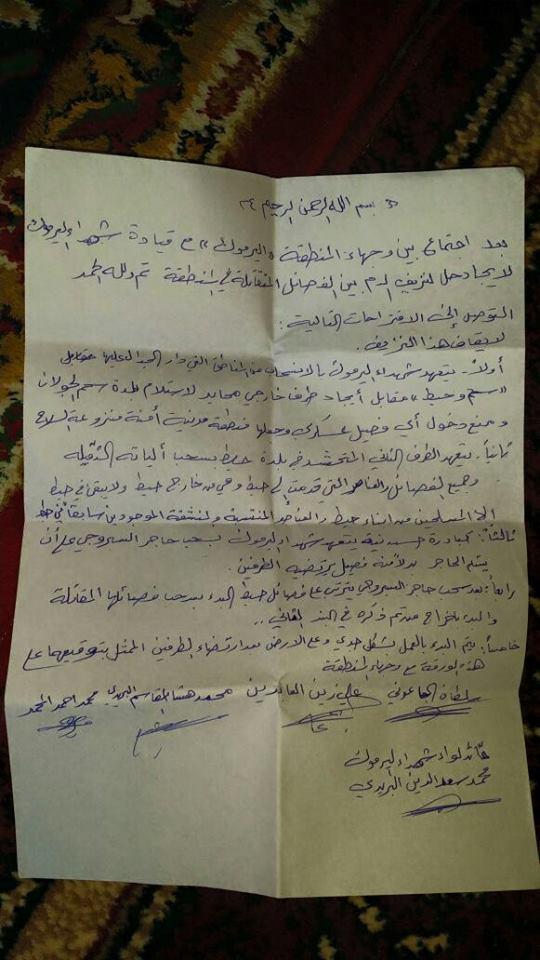 بسم الله الرحمن الرحيم
بعد اجتماع بين وجهاء المنطقة «اليرموك» مع قيادة شهداء اليرموك
لايجاد حل لنزيف الدم بين الفصائل المتقاتلة في المنطقة تم ولله الحمد
التوصل إلى الاقتراحات التالية :
لايقاف هذا النزيف.
أولاً - يتعهد شهداء اليرموك بالانسحاب من المناطق التي دار الجدال عليها مقابل
«سحم وحيط» مقابل أيجاد طرف خارجي محايد لاستلام بلدة سحم الجولان
ومنع دخول أي فصيل عسكري وجعلها منطقة مدنية آمنة منزوعة السلاح
ثانياً: يتعهد الطرف الثاني المتحشد في بلدة حيط بسحب آلياته الثقيلة
وجميع الفصائل والعناصر التي قدمت إلى حيط وهي من خارج حيط ولا يبقى في حيط
الا المسلحين من ابناء حيط والعناصر المنتسبة والمنشقة الموجودين سابقاً في حيط
ثالثاً: كبادرة حسن نية يتعهد شهداء اليرموك بسحب حاجز السيروجي على أن
يستلم الحاجز فصيل يرتضيه الطرفين.
رابعاً: بعد سحب حاجز السيروجي يترتب على فصائل حيط البدء بسحب فصائلها المقاتلة
والبدء باخراج من تم ذكره في البند الثاني ..
خامساً: يتم البدء بالعمل بشكل جدي وعلى الارض بعد ارتضاء الطرفين الممثل بتوقيعهما على
هذه الورقة مع وجهاء المنطقة
سلطان الجاعوني علي زين العابدين محمد هشام القاسم البريدي محمد احمد المحمد
قائد لواء شهداء اليرموك
محمد سعد الدين البريدي